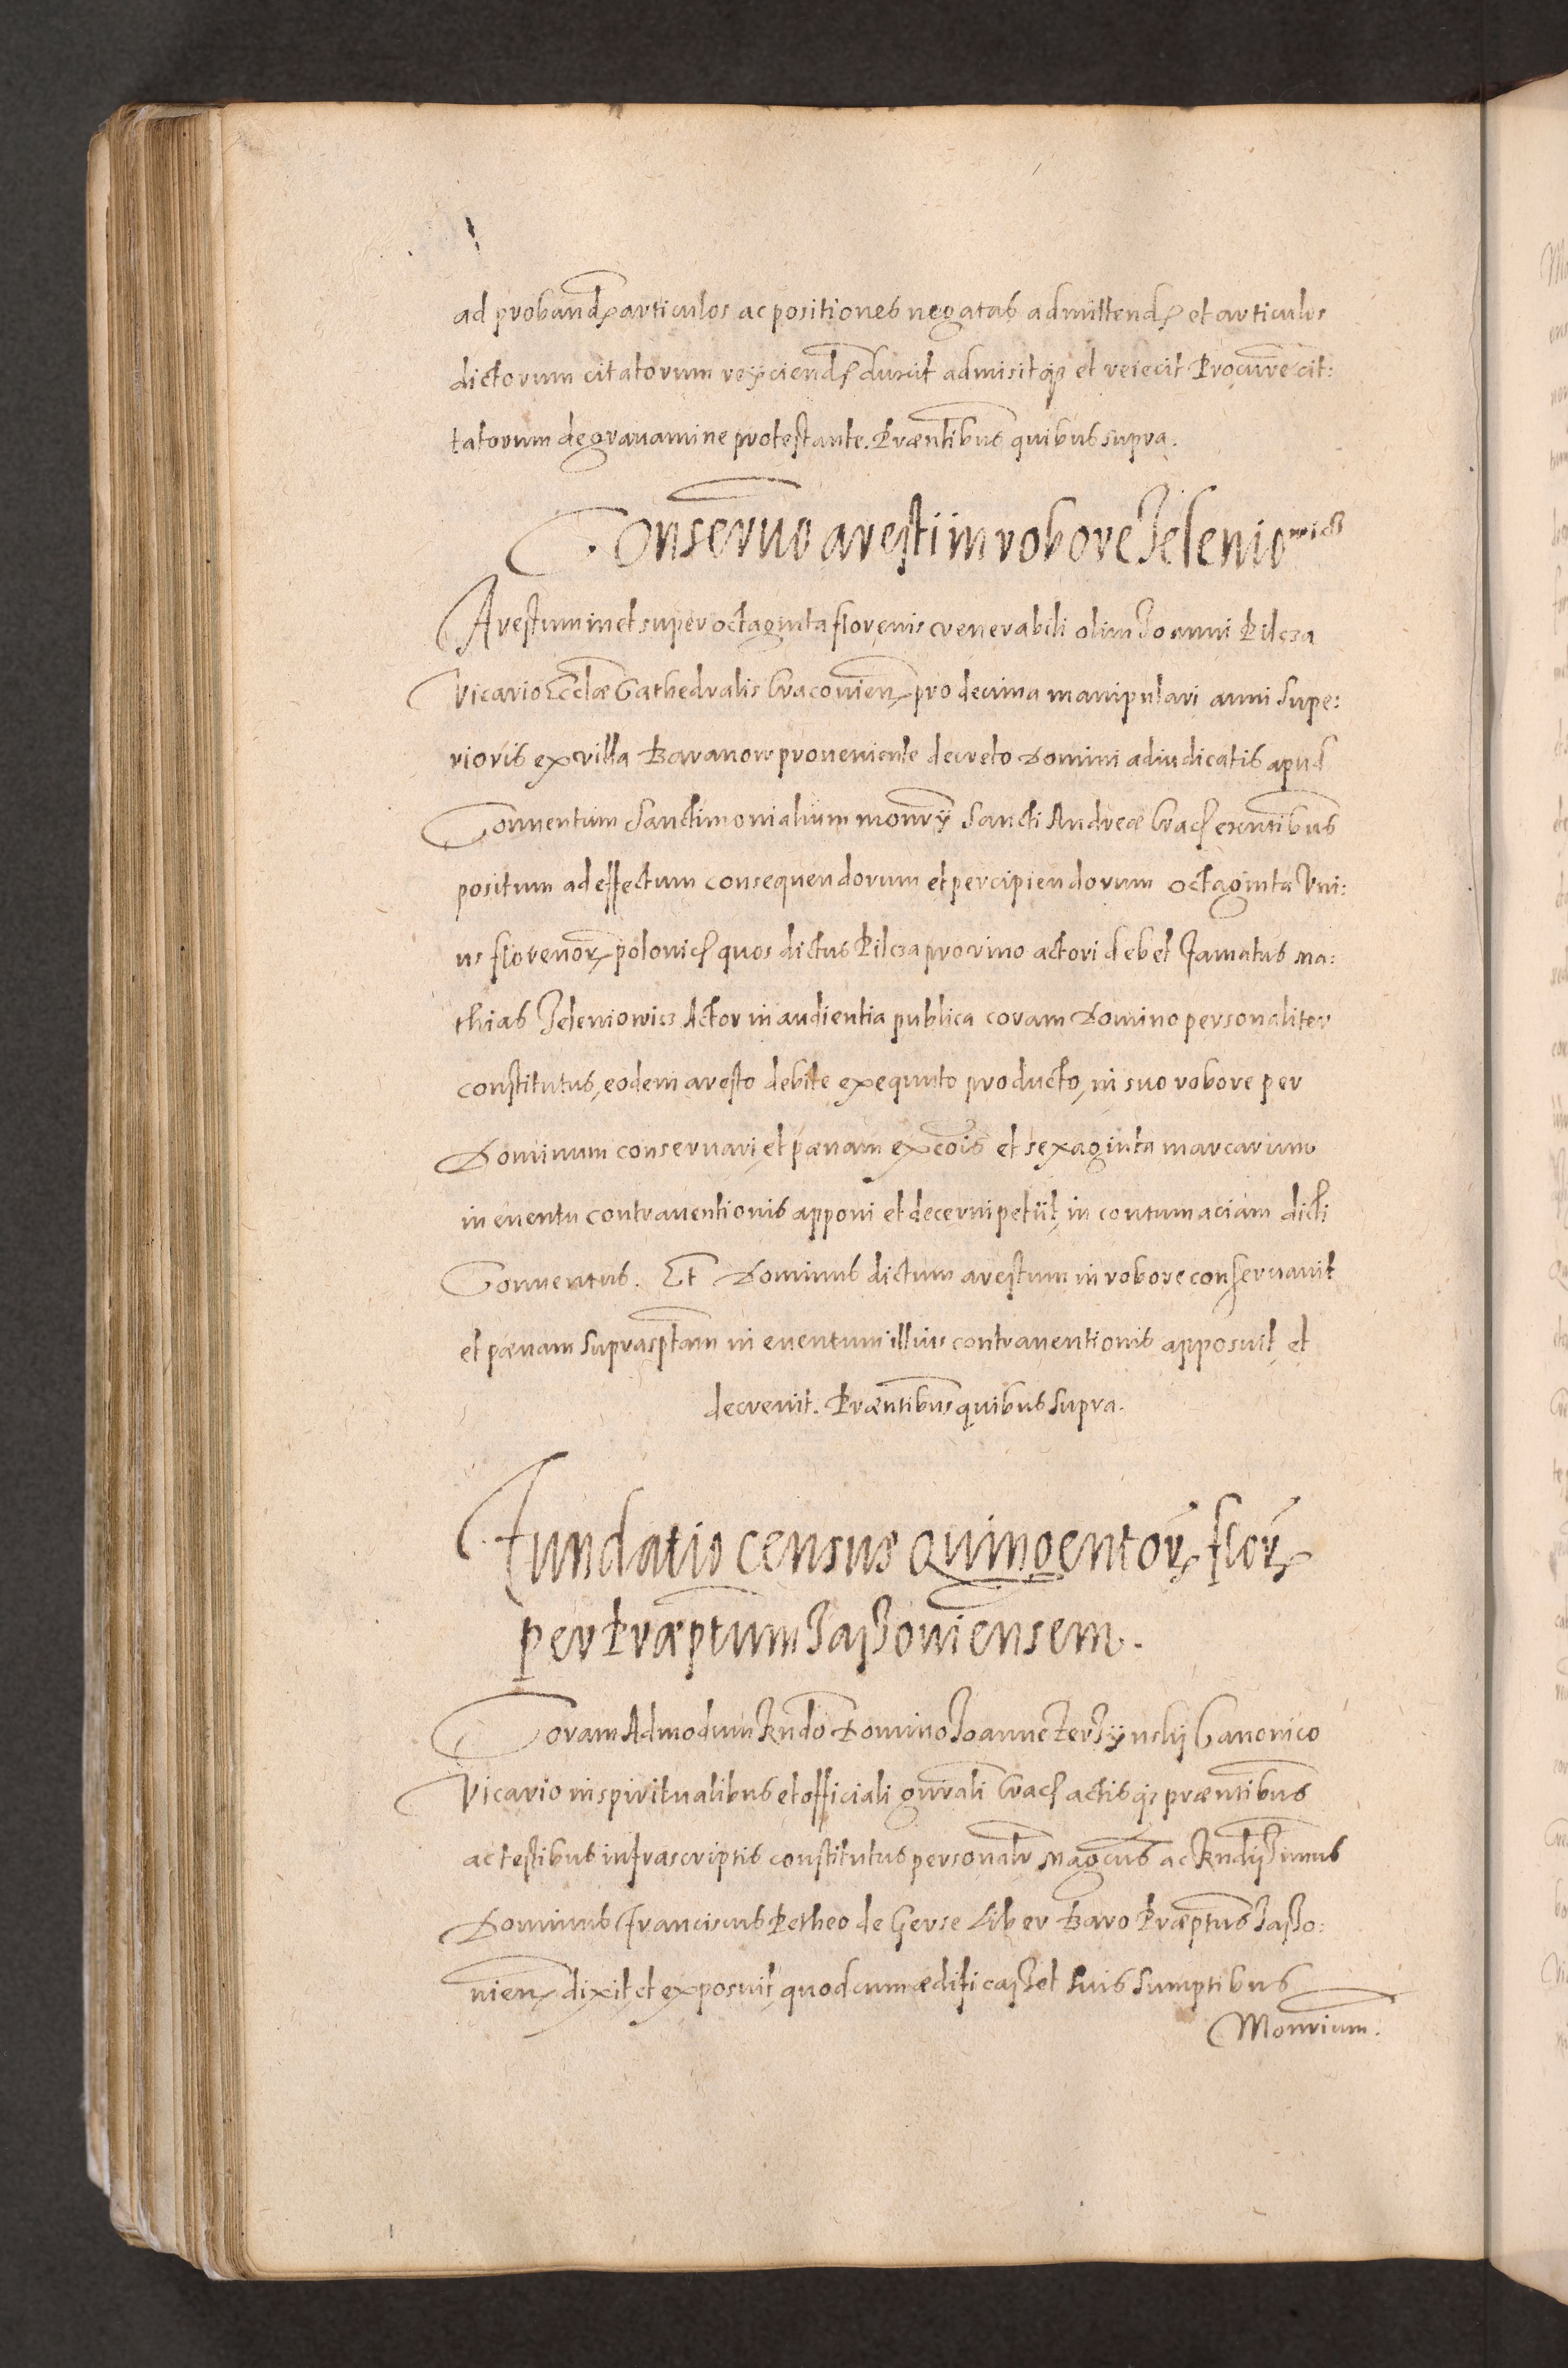 ad proband articulos ac positiones negatas admittend et articulos
dictorum citatorum reijciend duxit admisitq et reiecit Procure cit:
tatorum de gravamine protestante. Præntibus quibus supra.
Conseruo aresti in robore Jelenio
Arestum in et super octaginta florenis venerabili olim Joanni Pilcza
Vicario Ecclæ Cathedralis Cracouien pro decima manipulari anni supe:
rioris ex villa Baranow proueniente decreto Domini adiudicatis apud
Conuentum Sanctimonialium monrÿ Sancti Andreæ Crac exntibus
positum ad effectum consequendorum et percipiendorum octaginta Vni:
us florenor polonic quos dictus Pilcza pro vino actori debet Famatus Ma:
thias Jeleniowicz Actor in audientia publica coram Domino personaliter
constitutus, eodem aresto debite exequuto producto, in suo robore per
Dominum conseruari et pœnam excois et sexaginta marcarum
in euentu contrauentionis apponi et decerni petiit in contumaciam dicti
Conuentus. Et Dominus dictum arestum in robore conseruauit
et pœnam suprasptam in euentum illius contrauentionis apposuit et
decreuit. Præntibus quibus supra.
Fundatio census quingentor flor
per Præptum Jaßouiensem.
Coram Admodum Rndo Domino Joanne Canonico
Vicario in spiritualibus et officiali gnrali Crac actisq præntibus
ac testibus infrascriptis constitutus personalr Magcus ac Rndißimus
Dominus Franciscus Petheo de Gerse Liber Baro Præptus Jaßo:
uien dixit et exposuit quod cum ædificaßet suis sumptibus
Monrium.